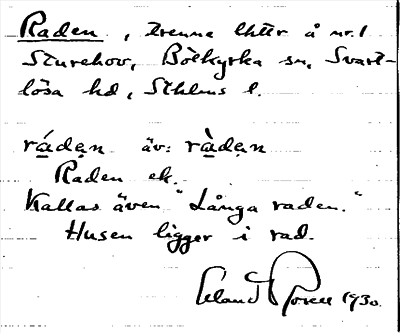 Raden, Trenne lhtr å nr. 1
Sturehov, Botkyrka sn, Svart-
lösa hd, Sthlms l.
ráden äv: ràden
Raden ek.
Kallas även "Långa raden."
Husen ligger i rad.
1930.